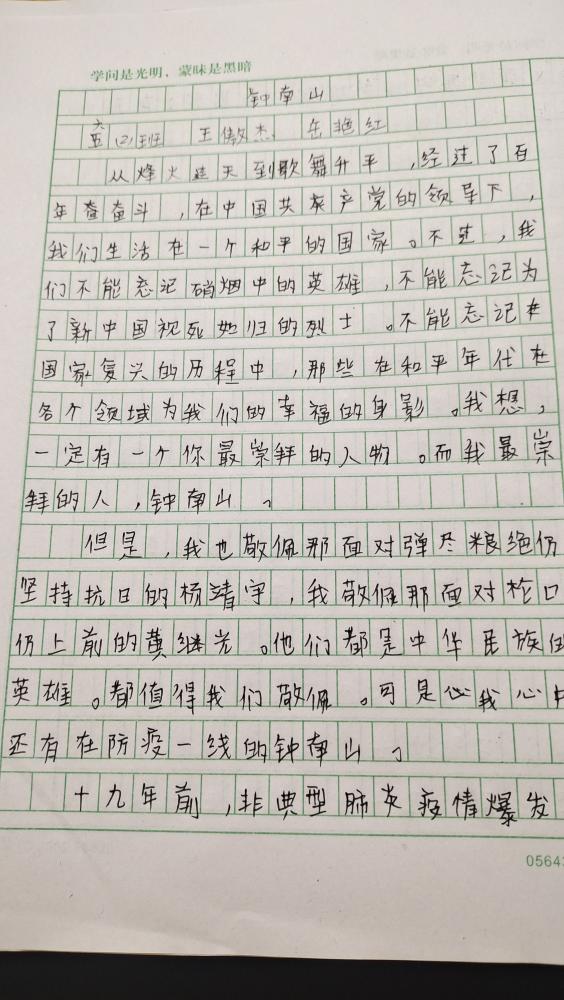 学问是光明，蒙昧是黑暗
钟南山
五六(2)班 王傲杰 岳艳红
从烽火连天到歌舞升平，经过了百
年奋斗，在中国共产党的领导下，
我们生活在一个和平的国家。不过，我
们不能忘记硝烟中的英雄，不能忘记为
了新中国视死如归的烈士。不能忘记在
国家复兴的历程中，那些在和平年代在
各个领域为我们的幸福的身影。我想，
一定有一个你最崇拜的人物。而我最崇
拜的人，钟南山。
但是，我也敬佩那面对弹尽粮绝仍
坚持抗日的杨靖宇，我敬佩那面对枪口
仍上前的黄继光。他们都是中华民族的
英雄。都值得我们敬佩。可是心我心中
还有在防疫一线的钟南山。
十九年前，非典型肺炎疫情爆发
0564